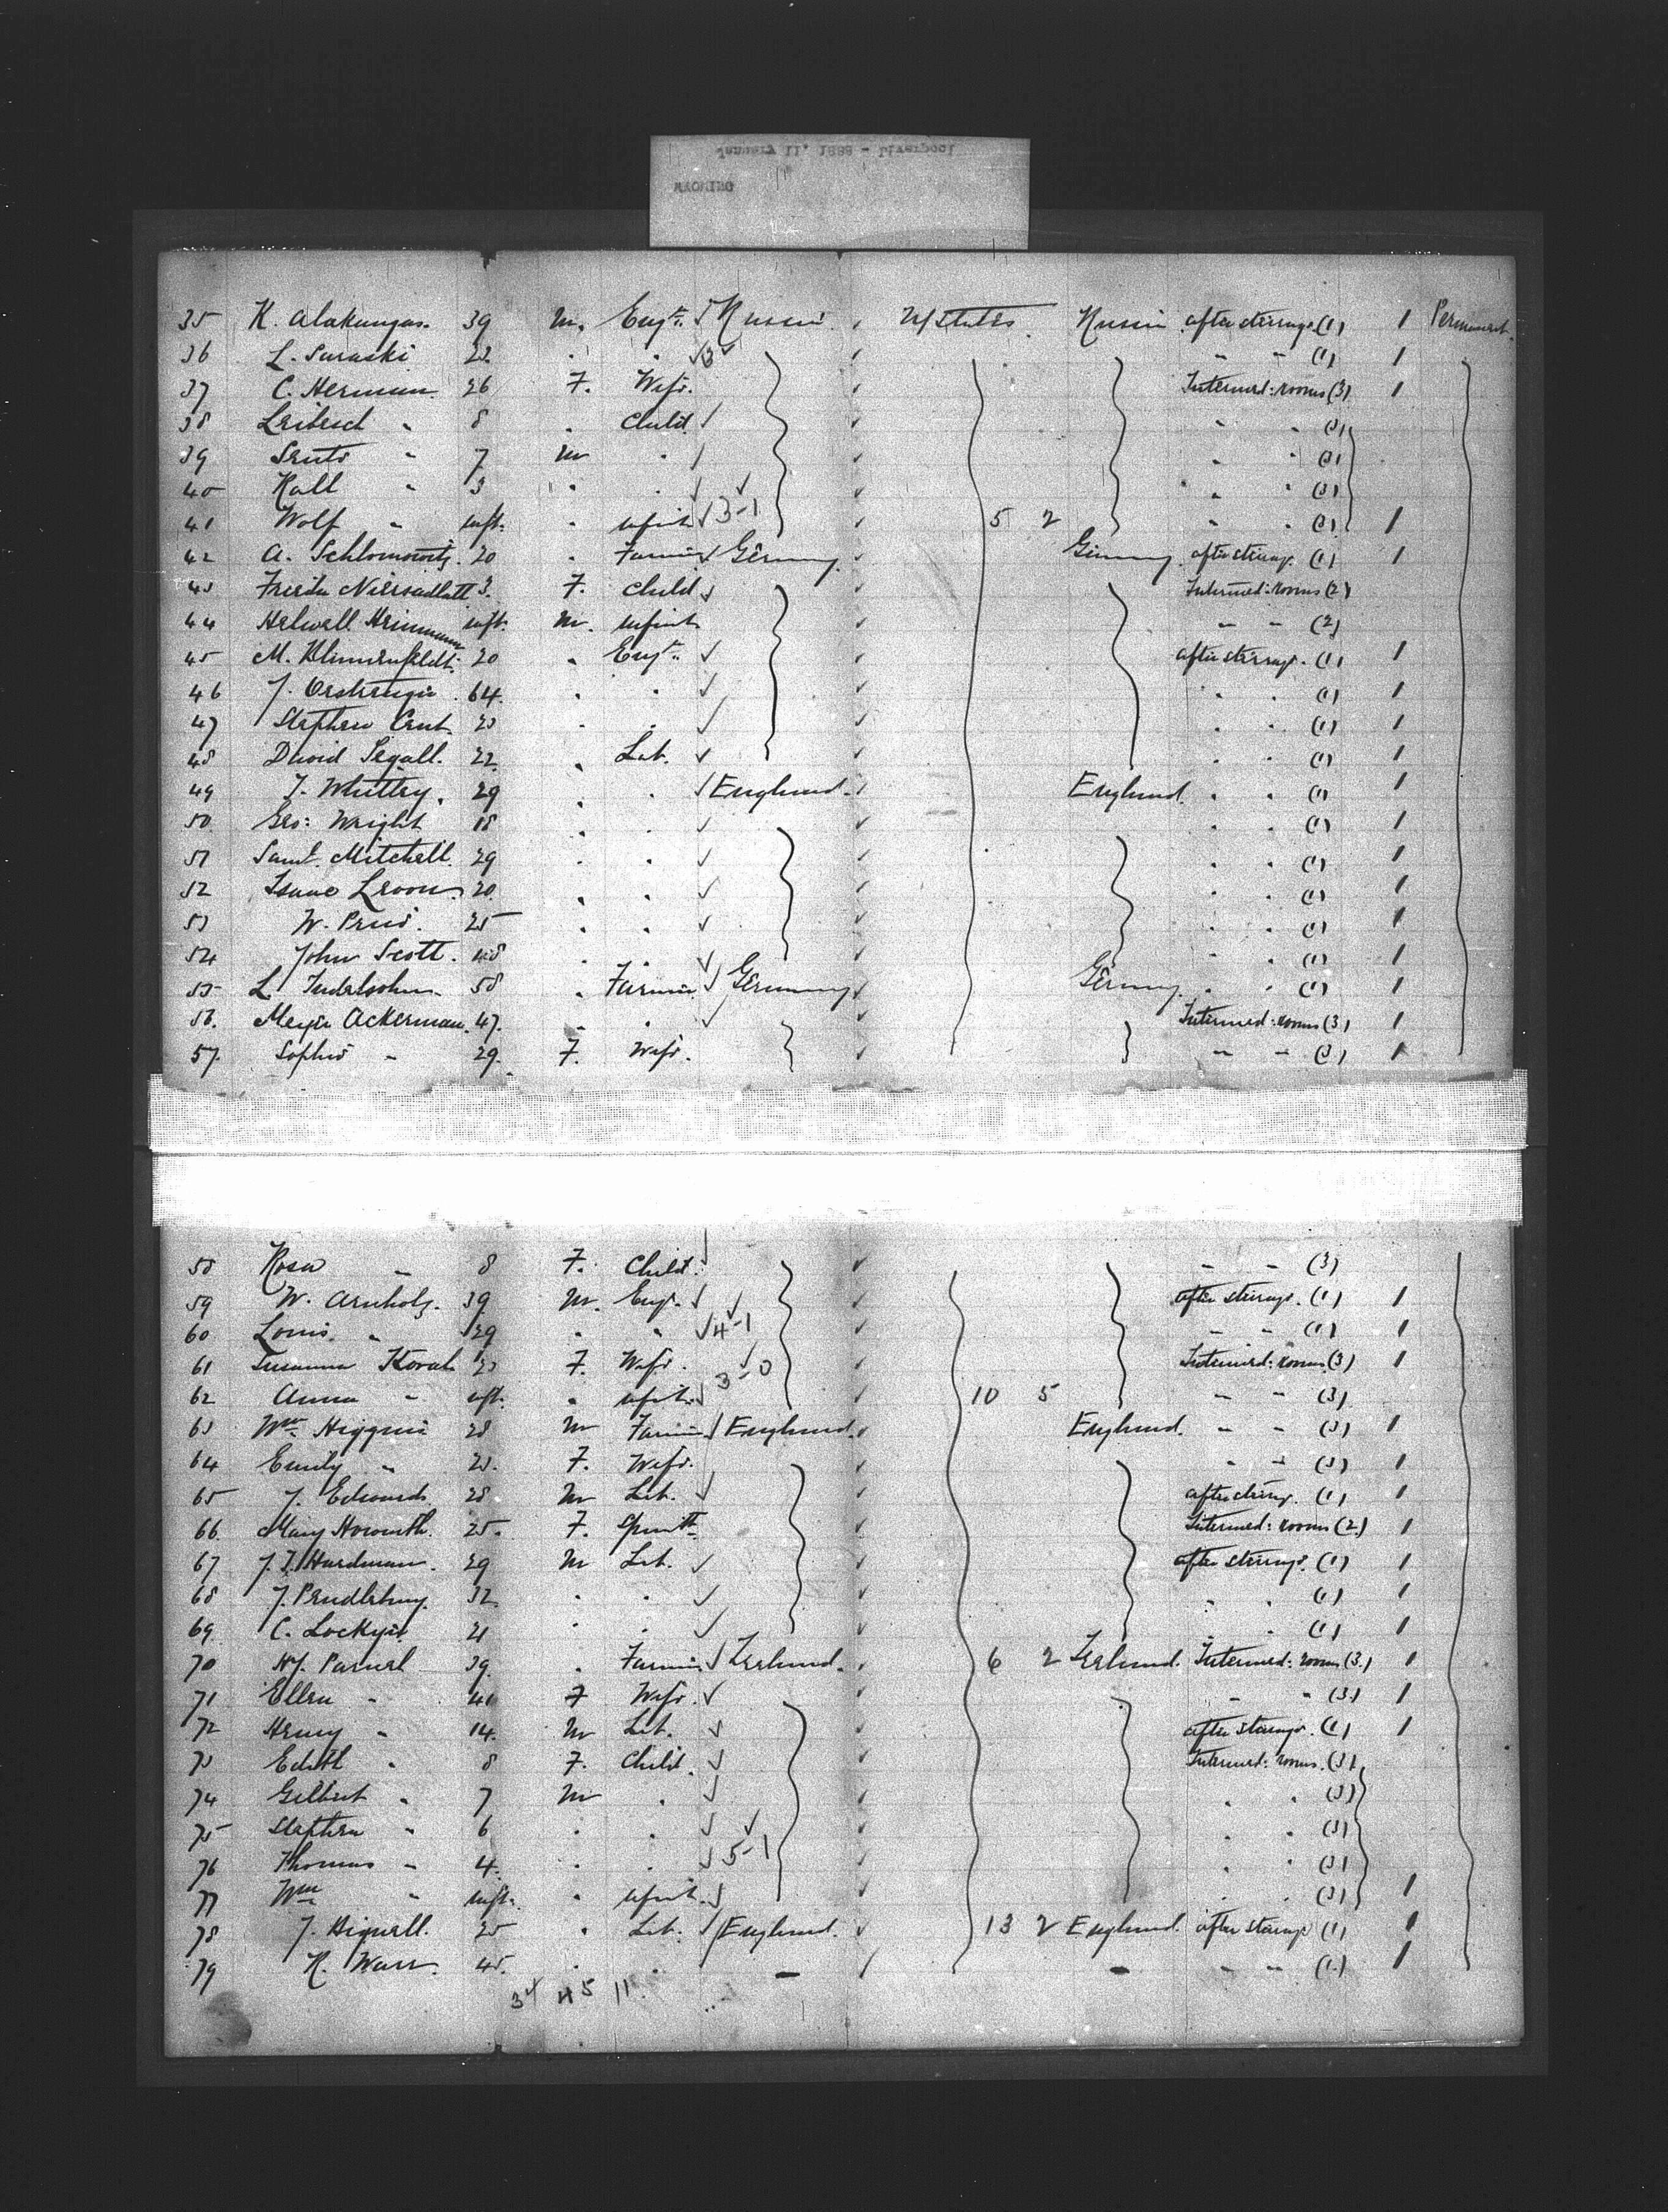 January 11, 1888 - Liverpool
WYOMING
35 K. Alakangas. 39 M. Engt. Russia. U States Russia after steerage (1) 1 Permanent
36 L. Suraski 22 " " 3 " " (1) 1
37 C. Herman 26 F. Wife. Intermed: rooms (3) 1
38 " 8 " Child " " (3)
39 " 7 M " " " (3)
40 Kall " 3 " " " " (3)
41 Wolf " inft. " infant 3-1 5 2 " " (3) 1
42 A. Schlomowitz. 20 " Farmer Germany. Germany. after steerage (1) 1
43 Frieda 3. F. Child Intermed: rooms (2)
44 Heinmann inft. M. infant " " (2)
45 M. Blumenfeldt. 20 " Engt. after steerage. (1) 1
46 J. 64. " " " " (1) 1
47 Stephen " " " " (1) 1
48 David Segall. 22. " Lab. " " (1) 1
49 J. Whittey. 29 " " England. England. " " (1) 1
50 Geo: Wright 18 " " " " (1) 1
51 Saml. Mitchell. 29 " " " " (1) 1
52 Isaac 20. " " " " (1) 1
53 W. 25 " " " " (1) 1
54 John Scott. 48 " " " " (1) 1
55 L. 58 " Farmer Germany Germany. " " (1) 1
56. Meyer Ackerman. 47. " " Intermed: rooms (3) 1
57. Sophie " 29. F. Wife. " " (3) 1
58 Rosa " 8 F. Child. " " (3)
59 W. Arnholz. 39. M. Engt. after steerage. (1) 1
60 Louis. " 29 " " 4-1 " " (1) 1
61 Susanna 23 F. Wife. 3-0 Intermed: rooms (3) 1
62 Anna " inft. " infant. 10 5 " " (3)
63 Wm Higgins 28 M Farmer England. England. " " (3) 1
64 Emily " 23. F. Wife. " " (3) 1
65 J. Edwards. 28 M Lab. after steerage. (1) 1
66. Mary Howarth. 25. F. Spinstr Intermed: rooms (2) 1
67 J. J. Hardman. 29 M Lab. after steerage. (1) 1
68 J. Pendlebury. 32 " " " " (1) 1
69. C. Lockyer. 21 " " " " (1) 1
70 Hy. Parnel 39. " Farmer Ireland. 6 2 Ireland. Intermed: rooms (3.) 1
71 Ellen " 40 F Wife. " " (3.) 1
72 Henry " 14. M Lab. after steerage. (1) 1
73 Edith " 8 F. Child. Intermed: rooms. (3)
74 Gilbert " 7 M " " " (3)
75 Stephen " 6 " " " " (3)
76 Thomas " 4. " " 5-1 " " (3)
77 Wm " inft. " infant. " " (3) 1
78 J. Bignell. 25 " Lab. England. 13 2 England. after steerage (1) 1
79 R. Warr. 45. " " - - " " (1.) 1
34 45 11